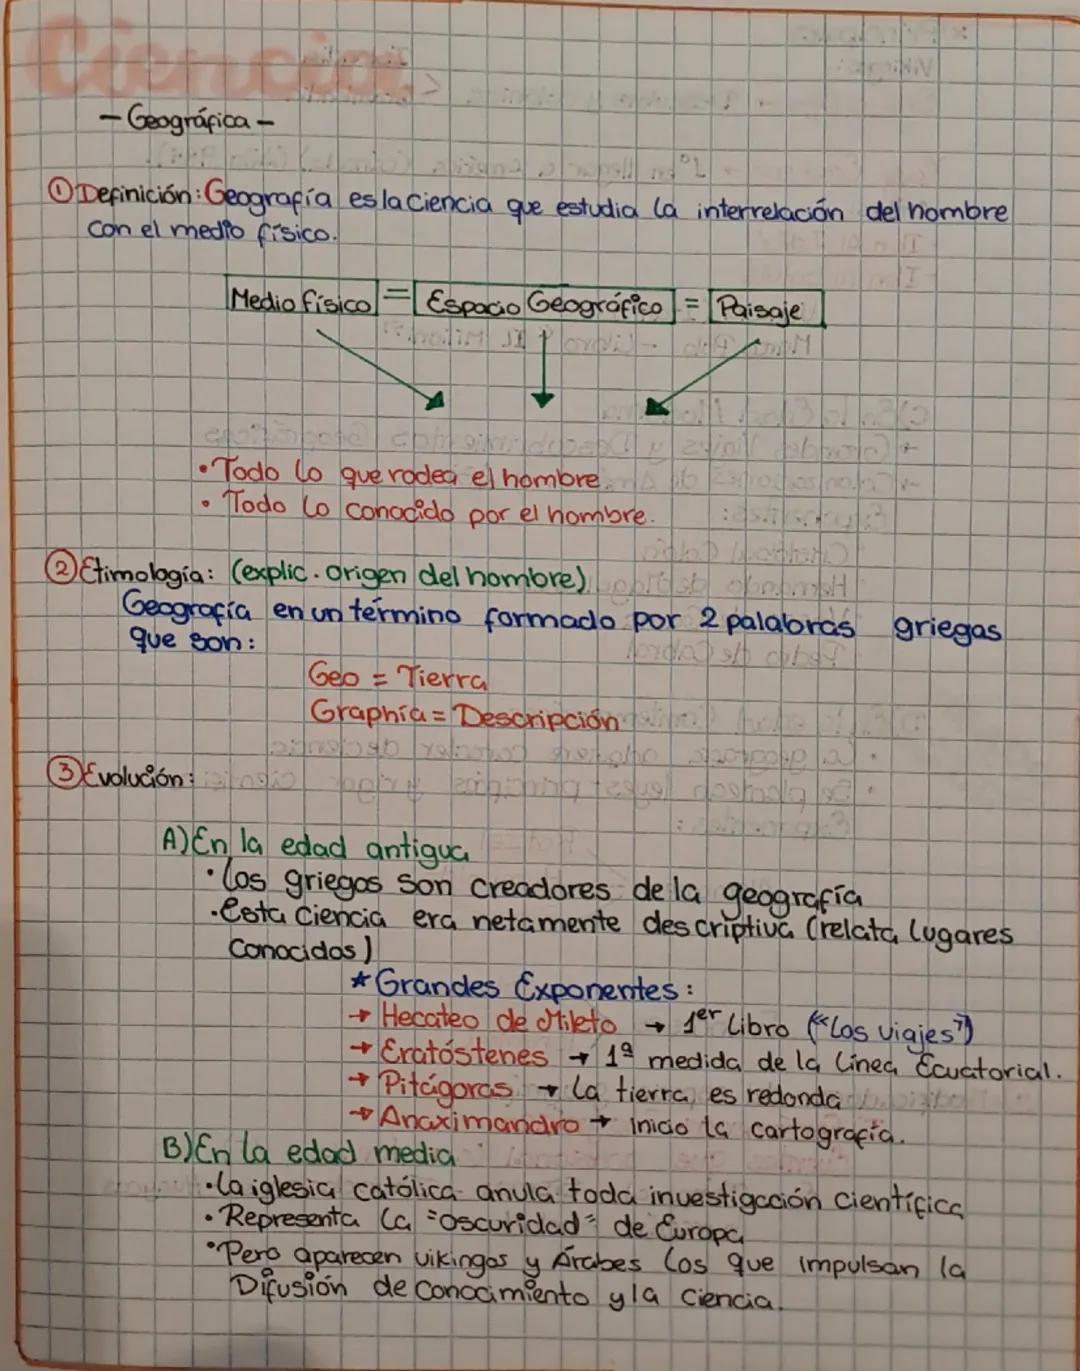 Ciencia
- Geográfica -
① Definición: Geografía es la ciencia que estudia la interrelación del hombre
con el medio físico.
Medio físico = Espacio Geográfico = Paisaje
• Todo lo que rodea el hombre
• Todo lo conocido por el hombre.
② Etimología: (explic. origen del hombre)
Geografía en un término formado por 2 palabras griegas
que son:
Geo = Tierra
Graphía = Descripción
③ Evolución:
A) En la edad antigua
• los griegos son creadores de la geografía
• esta ciencia era netamente descriptiva (relata lugares
conocidos)
* Grandes Exponentes:
→ Hecateo de Mileto → 1er Libro ("los viajes")
→ Eratóstenes → 1ª medida de la Línea Ecuatorial.
→ Pitágoras → la tierra es redonda
→ Anaximandro → inicio la cartografía.
B) En la edad media
• la iglesia católica anula toda investigación científica
• Representa la "oscuridad" de Europa
• Pero aparecen vikingos y Árabes los que impulsan la
Difusión de conocimiento y la ciencia.